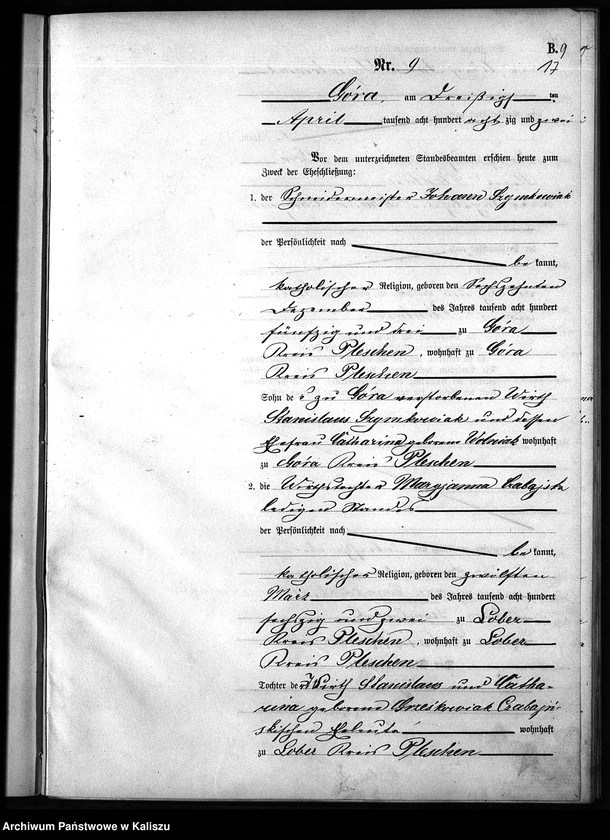 B. 9
Nr. 9
17
Góra, am Dreißigsten
April tausend acht hundert achtzig und zwei
Vor dem unterzeichneten Standesbeamten erschien heute zum
Zweck der Eheschließung:
1. der Schneidermeister Johann Szymkowiak
der Persönlichkeit nach
be kannt,
katholischer Religion, geboren den Sechszehnten
Dezember des Jahres tausend acht hundert
fünfzig und drei zu Góra
Kreis Pleschen, wohnhaft zu Góra
Kreis Pleschen
Sohn des zu Góra verstorbenen Wirth
Stanislaus Szymkowiak und dessen
Ehefrau Catharina geborene Wolniak wohnhaft
zu Góra Kreis Pleschen
2. die Wirthstochter Maryjanna
ledigen Standes
der Persönlichkeit nach
be kannt,
katholischer Religion, geboren den zwölften
März des Jahres tausend acht hundert
sechszig und zwei zu Lober
Kreis Pleschen, wohnhaft zu Lober
Kreis Pleschen
Tochter der Wirth Stanislaus und Catha-
rina geborene
skischen Eheleute wohnhaft
zu Lober Kreis Pleschen
Archiwum Państwowe w Kaliszu